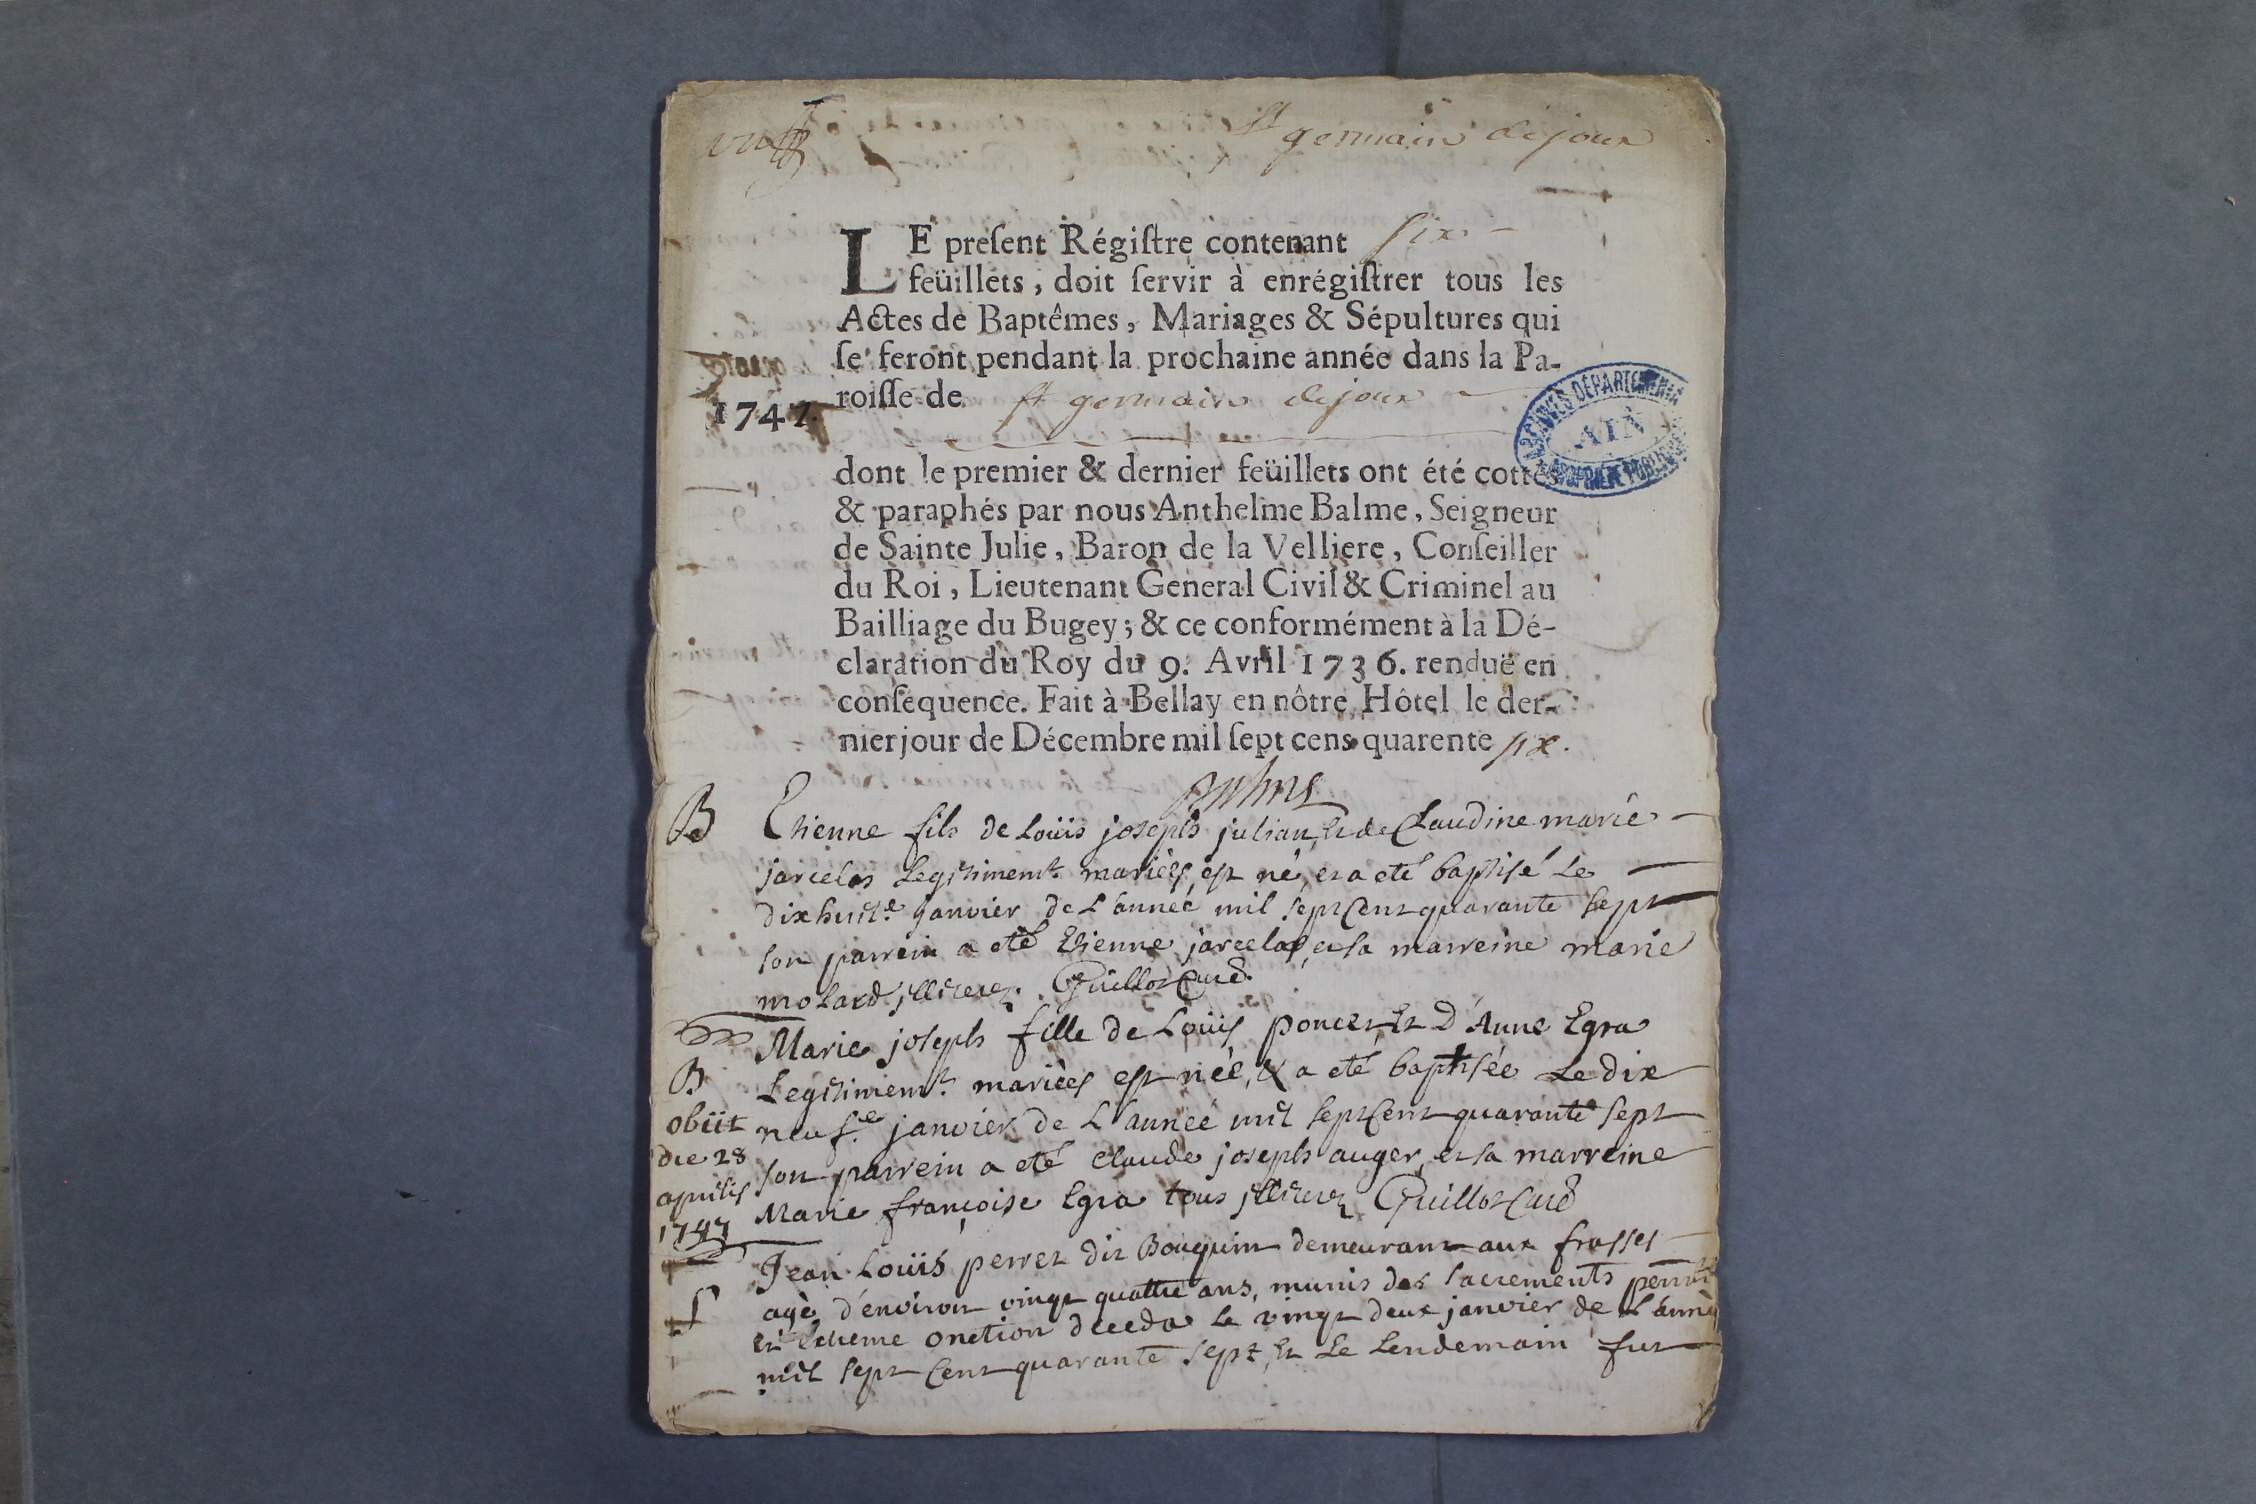 st germain dejoux
LE present Régistre contenant six
feüillets, doit servir à enrégistrer tous les
Actes de Baptêmes, Mariages & Sépultures qui
se feront pendant la prochaine année dans la Pa-
roisse de st germain dejoux
1747.
ARCHIVES DÉPARTEMENTA
AIN
PROPRIÉTÉ PUBLIQUE
dont le premier & dernier feüillets ont été cottés
& paraphés par nous Anthelme Balme, Seigneur
de Sainte Julie, Baron de la Velliere, Conseiller
du Roi, Lieutenant General Civil & Criminel au
Bailliage du Bugey; & ce conformément à la Dé-
claration du Roy du 9. Avril 1736. renduë en
consequence. Fait à Bellay en nôtre Hôtel le der-
nier jour de Décembre mil sept cens quarente six.
B Etienne fils de Loüis joseph julian, et de Claudine marie
jarcelas Legitimemt. mariés, est né, et a eté baptisé Le
dixhuite. janvier de L'année mil sept Cent quarante sept
son parrein a eté Etienne jarcelas, et sa marreine marie
molard illiterez. Guillot Curé.
Marie joseph fille de Loüis poncet, Et D'Anne Egra
B Legitimemt. mariées est née, & a eté baptisée Le dix
obiit neufe. janvier de L'année mil sept Cent quarante sept
die 28 son parrein a eté Claude joseph auger, et sa marreine
aprilis Marie françoise Egra tous illiterez Guillot Curé
1747
Jean Loüis perret dit Bouquin demeurant aux frasses
S agé d'environ vingt quattre ans, munis des sacrements
et Extreme onction deceda le vingt deux janvier de L'année
mil sept Cent quarante sept, et Le Lendemain fut